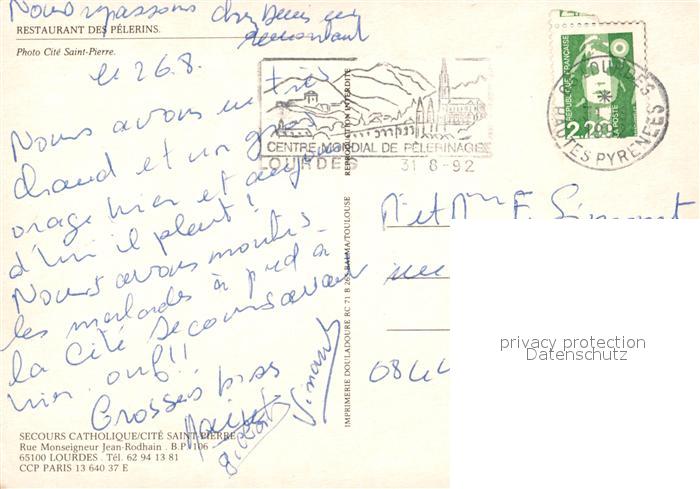 Nous repassons chez Denis en
remontant
RESTAURANT DES PÉLERINS.
Photo Cité Saint-Pierre.
le 26.8.
Nous avons eu très
chaud et un gros
orage hier et aujour
d'hui il pleut!
Nous avons montés
les malades à pied à
la Cité Secours avant
hier. ouf!!
Grosses bises
SECOURS CATHOLIQUE/CITÉ SAINT-PIERRE
Rue Monseigneur Jean-Rodhain . B.P. 106 -
65100 LOURDES . Tél. 62 94 13 81
CCP PARIS 13 640 37 E
REPRODUCTION INTERDITE
IMPRIMERIE DOULADOURE RC 71 B 265 BALMA/TOULOUSE
CENTRE MONDIAL DE PÉLERINAGE
LOURDES 31 8-92
RÉPUBLIQUE FRANÇAISE
LA POSTE
2,20
LOURDES
HAUTES PYRENEES
M et Mme F. Simonet
084
privacy protection
Datenschutz